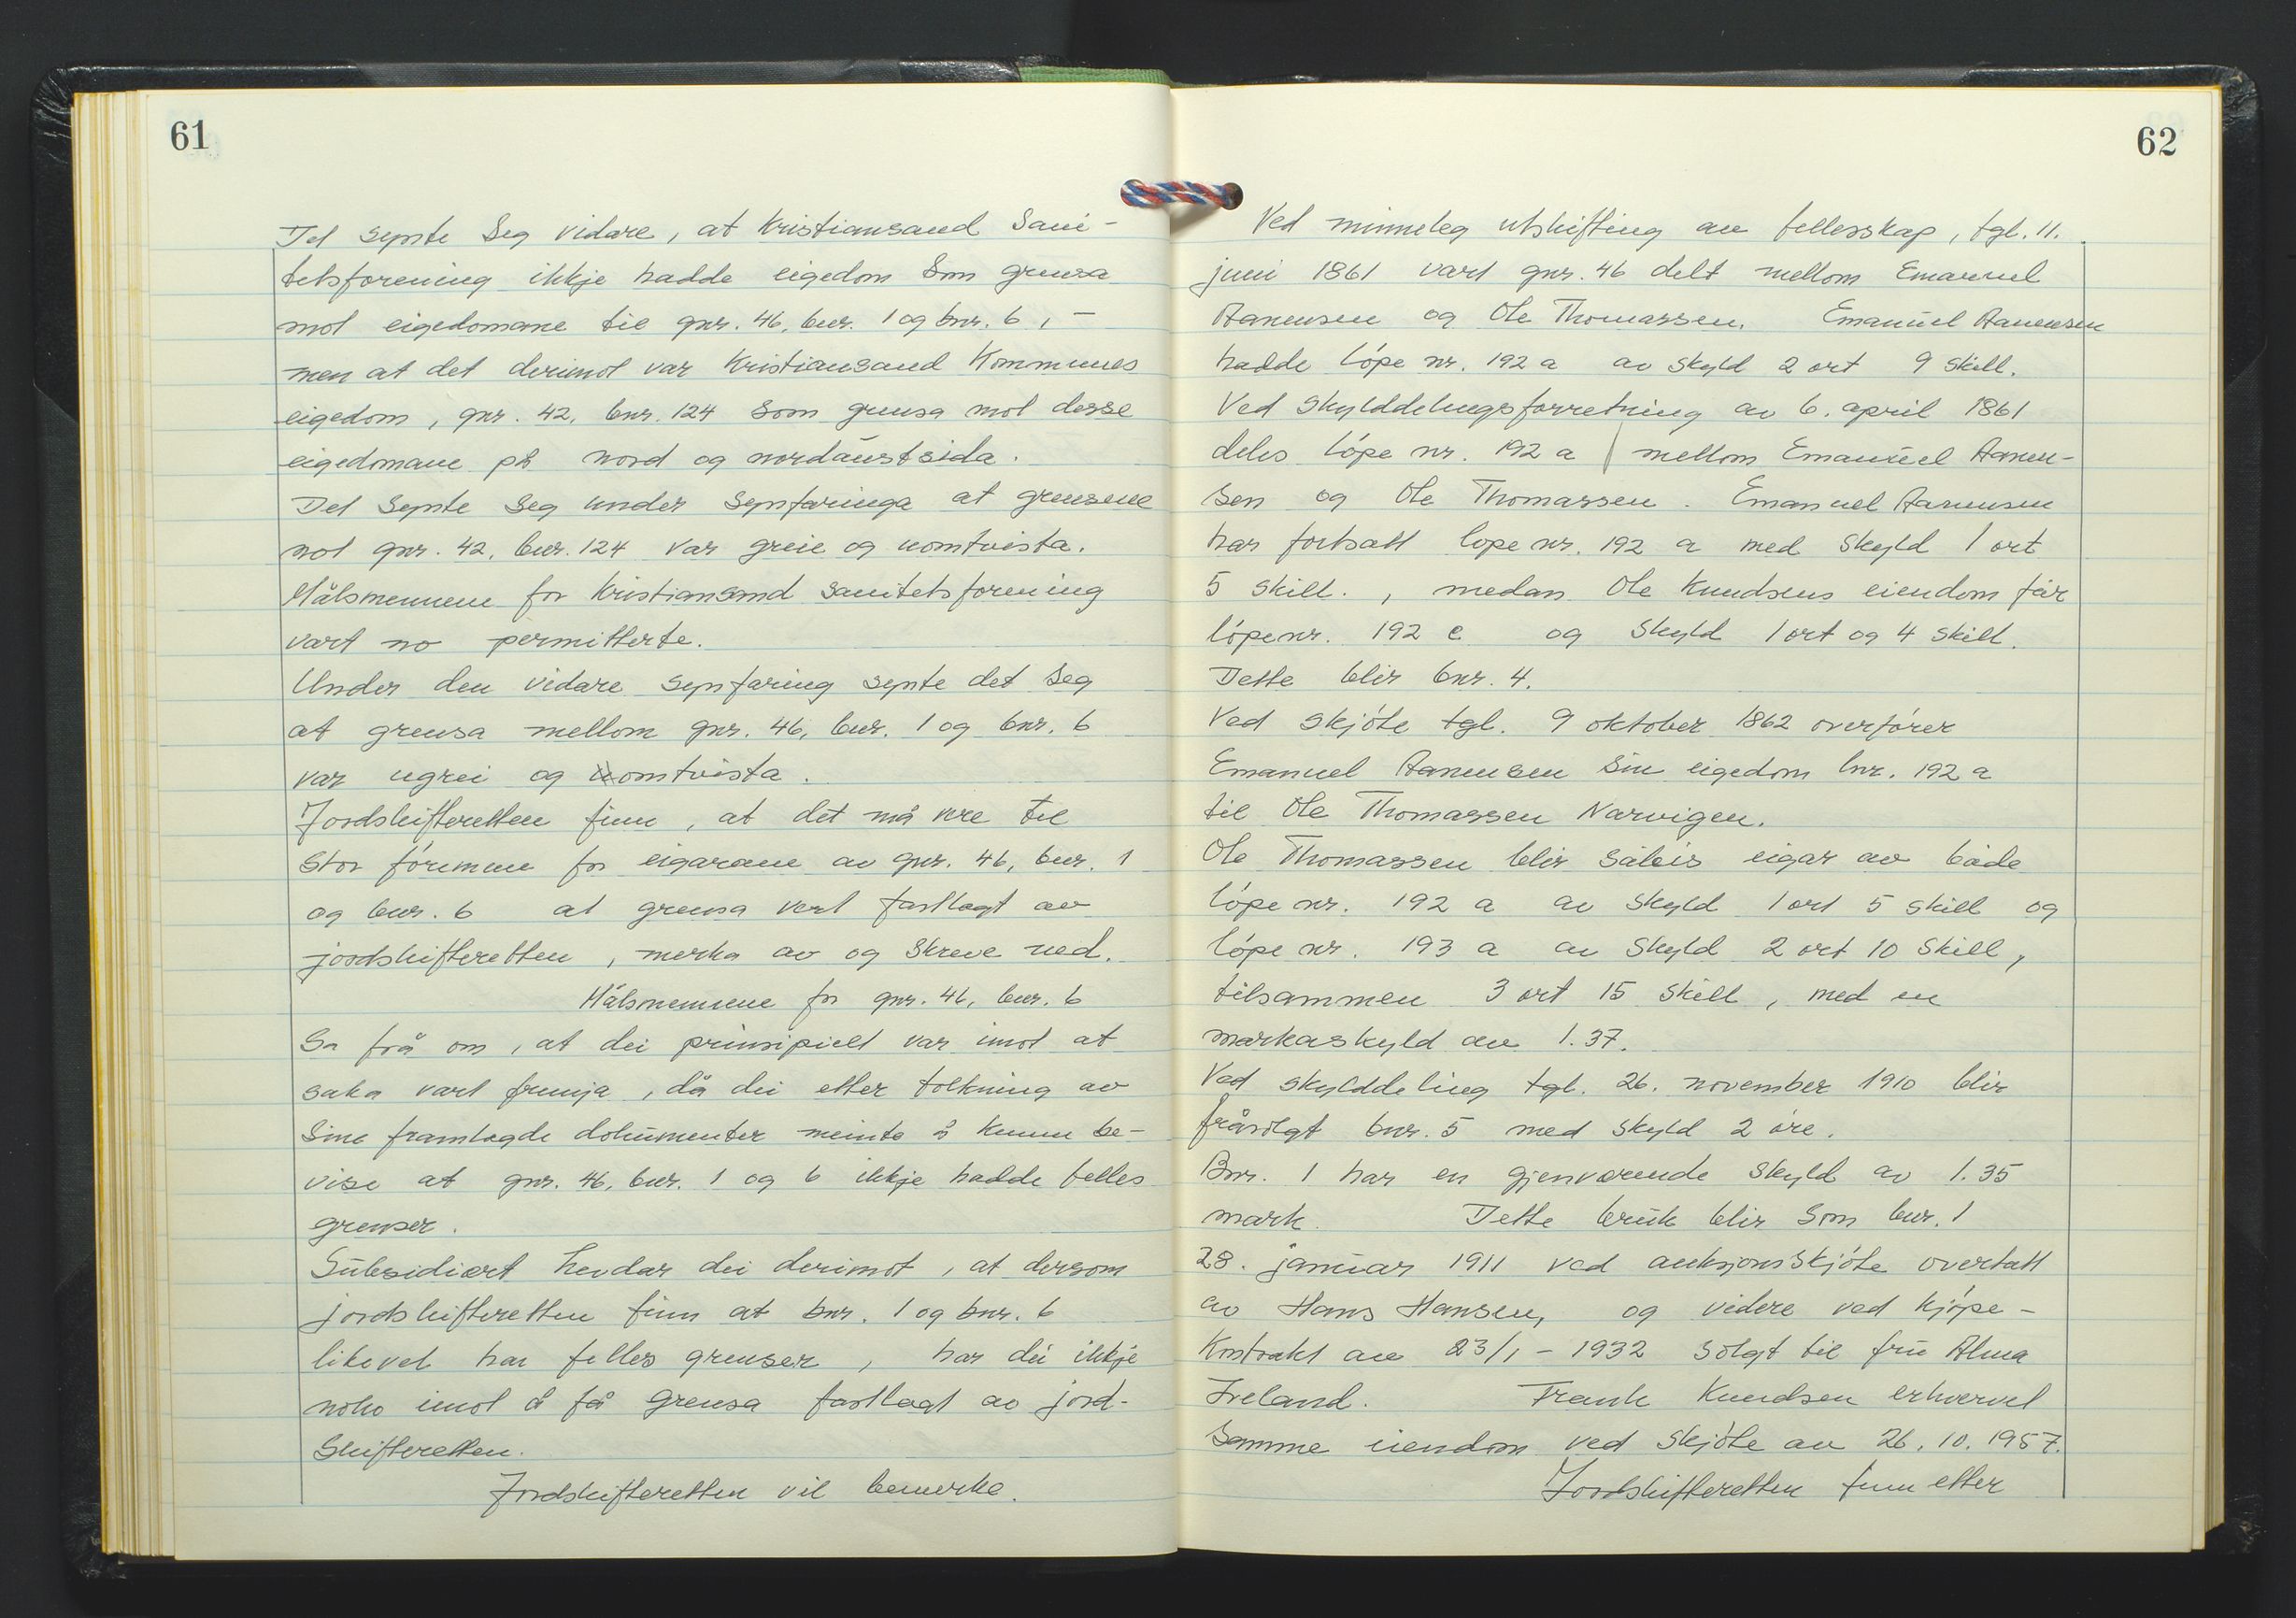 61
Det synte seg vidare, at Kristiansand Sani-
tetsforening ikkje hadde eigedom som grensa
mot eigedomane til gnr. 46, bnr. 1 og bnr. 6, -
men at det derimot var Kristiansand Kommunes
eigedom, gnr. 42, bnr. 124 som grensa mot desse
eigedomane på nord og nordaustsida.
Det synte seg under synfaringa at grensene
mot gnr. 42, bnr. 124 var greie og uomtvista.
Målsmennene for Kristiansand Sanitetsforening
vart no permitterte.
Under den vidare synfaring synte det seg
at grensa mellom gnr. 46, bnr. 1 og bnr. 6
var ugrei og omtvista.
Jordskifteretten finn, at det må vere til
stor föremun for eigarane av gnr. 46, bnr. 1
og bnr. 6 at grensa vert fastlagt av
jordskifteretten, merka av og skreve ned.
Målsmennene for gnr. 46, bnr. 6
Sa frå om, at dei prinsipielt var imot at
saka vart fremja, då dei etter tolkning av
sine framlagde dokumenter meinte å kunne be-
vise at gnr. 46, bnr. 1 og 6 ikkje hadde felles
grenser.
Subsidiært hevdar dei derimot, at dersom
jordskifteretten finn at bnr. 1 og bnr. 6
likevel har felles grenser, har dei ikkje
noko imot å få grensa fastlagt av jord-
skifteretten.
Jordskifteretten vil bemerke.
62
Ved minneleg utskifting av fellesskap, tgl. 11.
juni 1861 vart gnr. 46 delt mellom Emanuel
Aanensen og Ole Thomassen. Emanuel Aanensen
hadde löpe nr. 192 a av skyld 2 ort 9 skill.
Ved skylddelingsforretning av 6. april 1861
deles löpe nr. 192 a mellom Emanuel Aanen-
sen og Ole Thomassen. Emanuel Aanensen
har fortsatt lope nr. 192 a med skyld 1 ort
5 skill., medan Ole Knudsens eiendom får
löpenr. 192 c og skyld 1 ort og 4 skill.
Dette blir bnr. 4.
Ved skjöte tgl. 9 oktober 1862 overförer
Emanuel Aanensen sin eigedom lnr. 192 a
til Ole Thomassen Narvigen.
Ole Thomassen blir såleis eigar av både
löpe nr. 192 a av skyld 1 ort 5 skill og
löpe nr. 193 a av skyld 2 ort 10 skill,
tilsammen 3 ort 15 skill, med en
markaskyld av 1.37.
Ved skylddeling tgl. 26. november 1910 blir
fråsolgt bnr. 5 med skyld 2 öre.
Bnr. 1 har en gjenværende skyld av 1.35
mark. Dette bruk blir som bnr. 1
28. januar 1911 ved auksjonsskjöte overtatt
av Hans Hansen, og videre ved kjöpe-
kontrakt av 23/1 - 1932 solgt til fru Alma
Ireland. Frank Knudsen erhvervet
samme eiendom ved skjöte av 26.10.1957.
Jordskifteretten finn etter